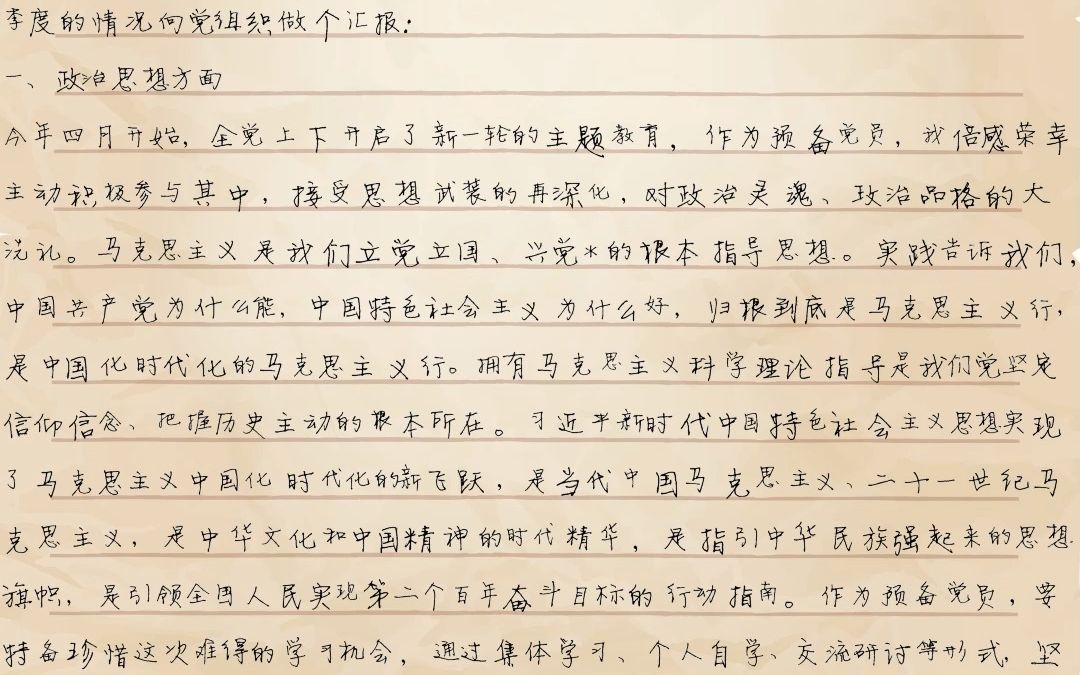 季度的情况向党组织做个汇报:
一、政治思想方面
今年四月开始,全党上下开启了新一轮的主题教育,作为预备党员,我倍感荣幸
主动积极参与其中,接受思想武装的再深化,对政治灵魂、政治品格的大
洗礼。马克思主义是我们立党立国、兴党*的根本指导思想。实践告诉我们,
中国共产党为什么能,中国特色社会主义为什么好,归根到底是马克思主义行,
是中国化时代化的马克思主义行。拥有马克思主义科学理论指导是我们党坚定
信仰信念、把握历史主动的根本所在。习近平新时代中国特色社会主义思想实现
了马克思主义中国化时代化的新飞跃,是当代中国马克思主义、二十一世纪马
克思主义,是中华文化和中国精神的时代精华,是指引中华民族强起来的思想
旗帜,是引领全国人民实现第二个百年奋斗目标的行动指南。作为预备党员,要
特备珍惜这次难得的学习机会,通过集体学习、个人自学、交流研讨等形式,坚